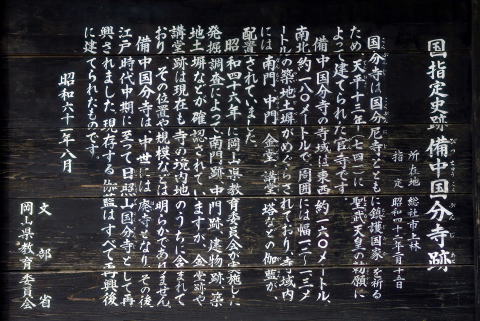 国指定史跡 備中国分寺跡
所在地 総社市上林
指定 昭和四十三年二月十五日
国分寺は国分尼寺とともに鎮護国家を祈る
ため、天平十三年(七四一)に聖武天皇の勅願に
よって建てられた官寺です。
備中国分寺の寺域は東西約一六〇メートル、
南北約一八〇メートルで、周囲には幅一・一三メ
ートルの築地土塀がめぐらされており、寺域内
には、南門、中門、金堂、講堂、塔などの伽藍が、
配置されていました。
昭和四十六年に岡山県教育委員会が実施した
発掘調査によって、南門跡、中門跡、建物跡、築
地土塀などが確認されていますが、金堂跡や
講堂跡は現在も寺の境内地のうちに含まれて
おり、その位置や規模などは明らかでありません。
備中国分寺は、中世には廃寺となり、その後
江戸時代中期に至って日照山国分寺として再
興されました。現存する伽藍はすべて再興後
に建てられたものです。
昭和六十一年八月
文部省
岡山県教育委員会